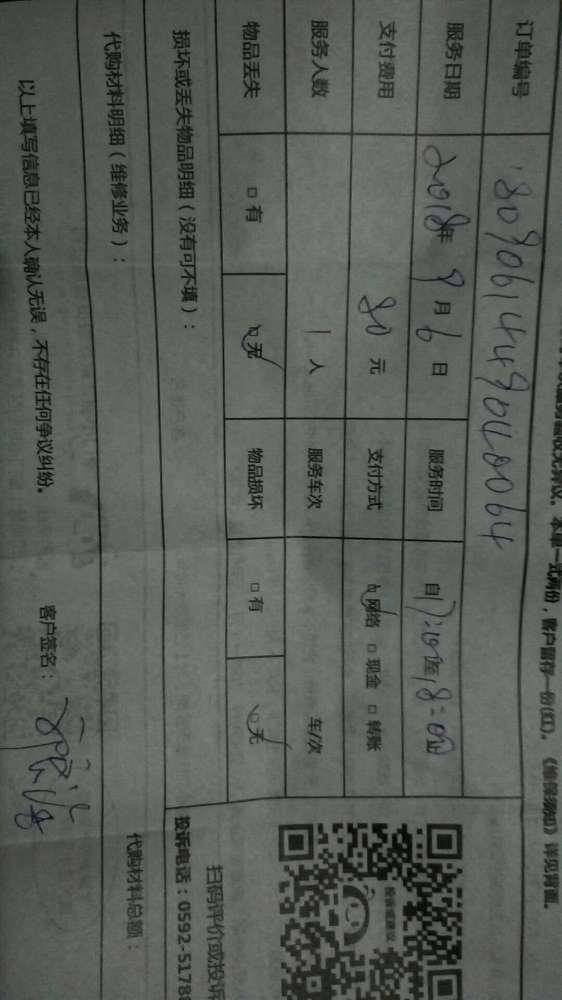 本单一式两份，客户留存一份(红)。《维保须知》详见背面。
订单编号 180906144904L0064
服务日期 2018年 9月 6日 服务时间 自17:00至18:00止
支付费用 80元 支付方式 ☑网络 □现金 □转账
服务人数 1人 服务车次 车/次
物品丢失 □有 ☑无 物品损坏 □有 ☑无
损坏或丢失物品明细（没有可不填）：
扫码评价或投诉
投诉电话：0592-5178
代购材料明细（维修业务）： 代购材料总额：
以上填写信息已经本人确认无误，不存在任何争议纠纷。 客户签名：